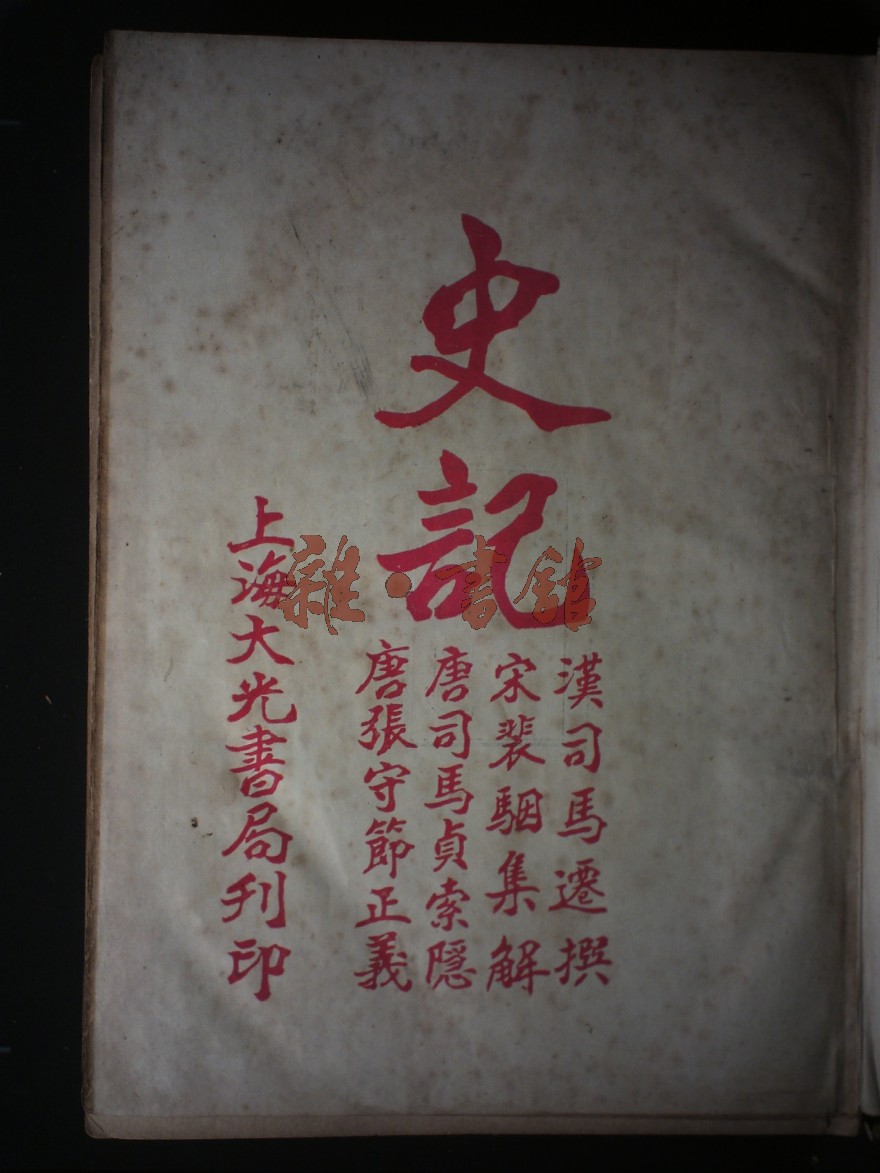 史記
漢司馬遷撰
宋裴駰集解
唐司馬貞索隱
唐張守節正義
上海大光書局刊印
雜·書館